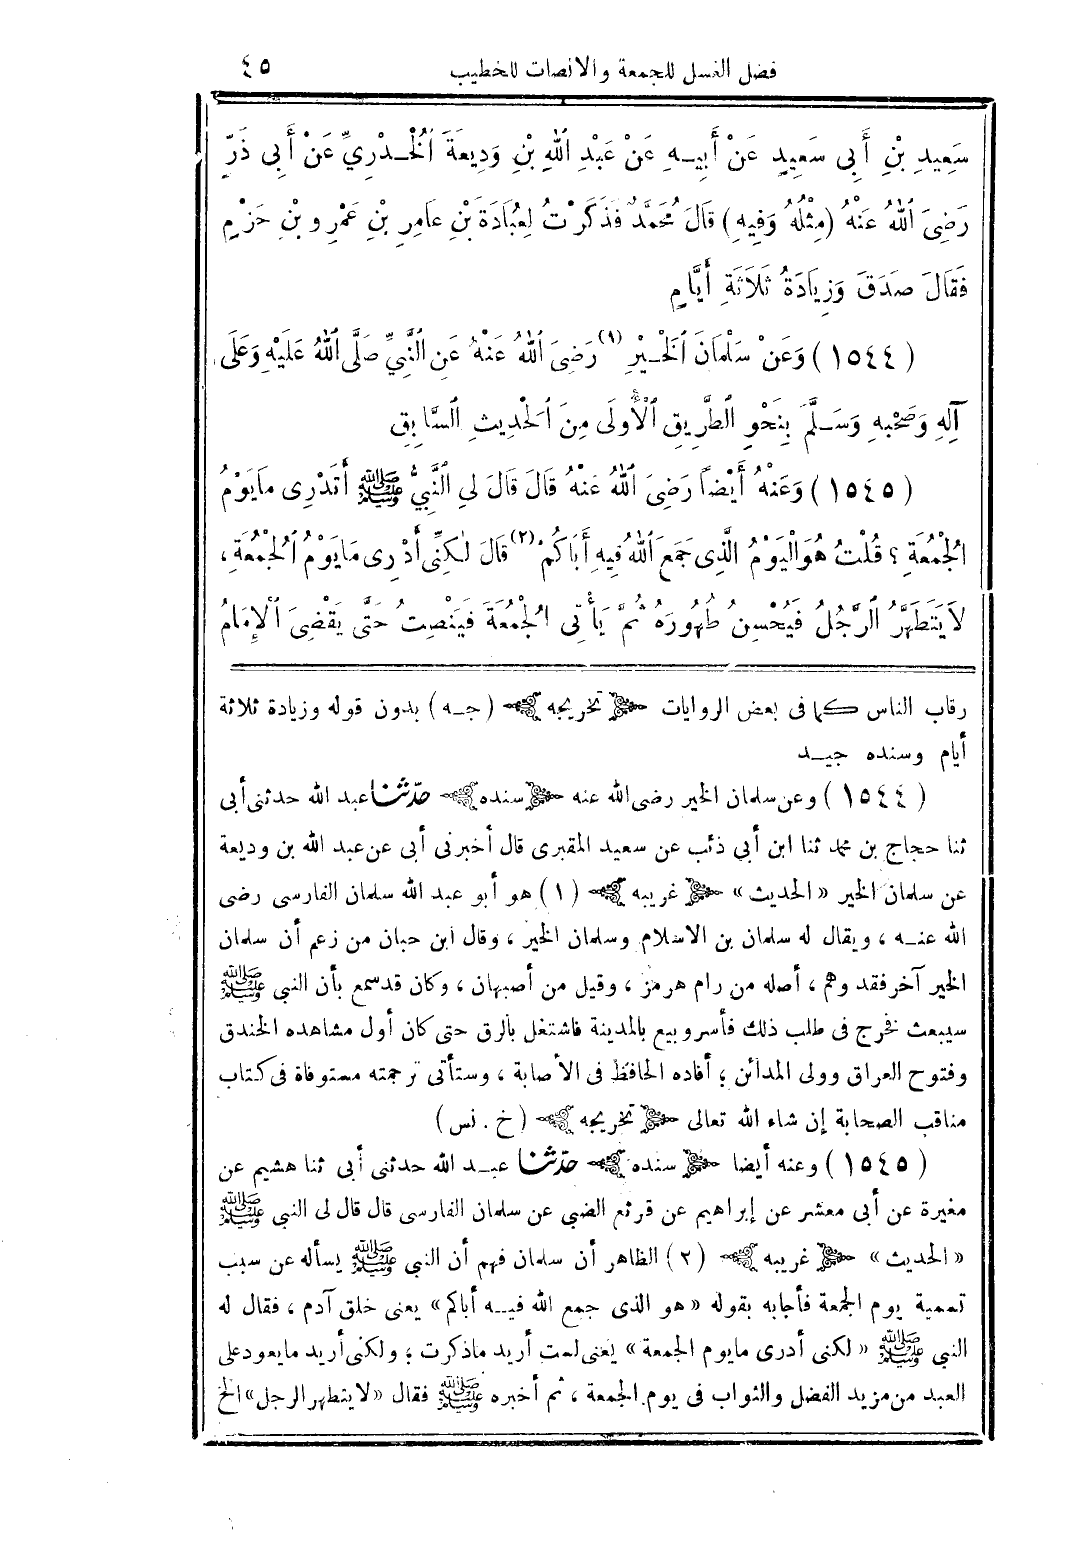 فضل الغسل للجمعة والانصات للخطيب ٤٥
سَعِيدِ بْنِ أَبِى سَعِيدٍ عَنْ أَبِيـهِ عَنْ عَبْدِ اللهِ بْنِ وَدِيعَةَ الْخُـدْرِيِّ عَنْ أَبِى ذَرٍّ
رَضِىَ اللهُ عَنْهُ (مِثْلُهُ وَفِيهِ) قَالَ مُحَمَّدٌ فَذَكَرْتُ لِعُبَادَةَ بْنِ عَامِرِ بْنِ عَمْرِو بْنِ حَزْمٍ
فَقَالَ صَدَقَ وَزِيَادَةُ ثَلَاثَةِ أَيَّامٍ
(١٥٤٤) وَعَنْ سَلْمَانَ الْخَـيْرِ (١) رَضِىَ اللهُ عَنْهُ عَنِ النَّبِيِّ صَلَّى اللهُ عَلَيْهِ وَعَلَى
آلِهِ وَصَحْبِهِ وَسَـلَّمَ بِنَحْوِ الطَّرِيقِ الْأُولَى مِنَ الْحَدِيثِ السَّابِقِ
(١٥٤٥) وَعَنْهُ أَيْضاً رَضِىَ اللهُ عَنْهُ قَالَ قَالَ لِي النَّبِيُّ ﷺ أَتَدْرِى مَا يَوْمُ
الْجُمُعَةِ ؟ قُلْتُ هُوَ الْيَوْمُ الَّذِى جَمَعَ اللهُ فِيهِ أَبَاكُمْ (٢) قَالَ لَكِنِّى أَدْرِى مَا يَوْمُ الْجُمُعَةِ،
لَا يَتَطَهَّرُ الرَّجُلُ فَيُحْسِنُ طُهُورَهُ ثُمَّ يَأْتِى الْجُمُعَةَ فَيَنْصِتُ حَتَّى يَقْضِىَ الْإِمَامُ
رقاب الناس كما فى بعض الروايات ﴿تخريجه﴾ (جـه) بدون قوله وزيادة ثلاثة
أيام وسنده جيـد
(١٥٤٤) وعن سلمان الخير رضى الله عنه ﴿سنده﴾ حدّثنا عبد الله حدثنى أبى
ثنا حجاج بن محمد ثنا ابن أبي ذئب عن سعيد المقبرى قال أخبرنى أبى عن عبد الله بن وديعة
عن سلمان الخير «الحديث» ﴿غريبه﴾ (١) هو أبو عبد الله سلمان الفارسى رضى
الله عنـه ، ويقال له سلمان بن الاسلام وسلمان الخير ، وقال ابن حبان من زعم أن سلمان
الخير آخر فقد وهم ، أصله من رام هرمز ، وقيل من أصبهان ، وكان قد سمع بأن النبي ﷺ
سيبعث فخرج فى طلب ذلك فأسر وبيع بالمدينة فاشتغل بالرق حتى كان أول مشاهده الخندق
وفتوح العراق وولى المدائن ؛ أفاده الحافظ فى الأصابة ، وستأتى ترجمته مستوفاة فى كتاب
مناقب الصحابة إن شاء الله تعالى ﴿تخريجه﴾ (خ . نس)
(١٥٤٥) وعنه أيضا ﴿سنده﴾ حدّثنا عبـد الله حدثنى أبى ثنا هشيم عن
مغيرة عن أبى معشر عن إبراهيم عن قرثع الضبى عن سلمان الفارسى قال قال لى النبى ﷺ
«الحديث» ﴿غريبه﴾ (٢) الظاهر أن سلمان فهم أن النبى ﷺ يسأله عن سبب
تسمية يوم الجمعة فأجابه بقوله «هو الذى جمع الله فيـه أباكم» يعنى خلق آدم ، فقال له
النبى ﷺ «لكنى أدرى مايوم الجمعة» يعنى لست أريد ماذكرت ؛ ولكنى أريد مايعود على
العبد من مزيد الفضل والثواب فى يوم الجمعة ، ثم أخبره ﷺ فقال «لايتطهر الرجل» الخ